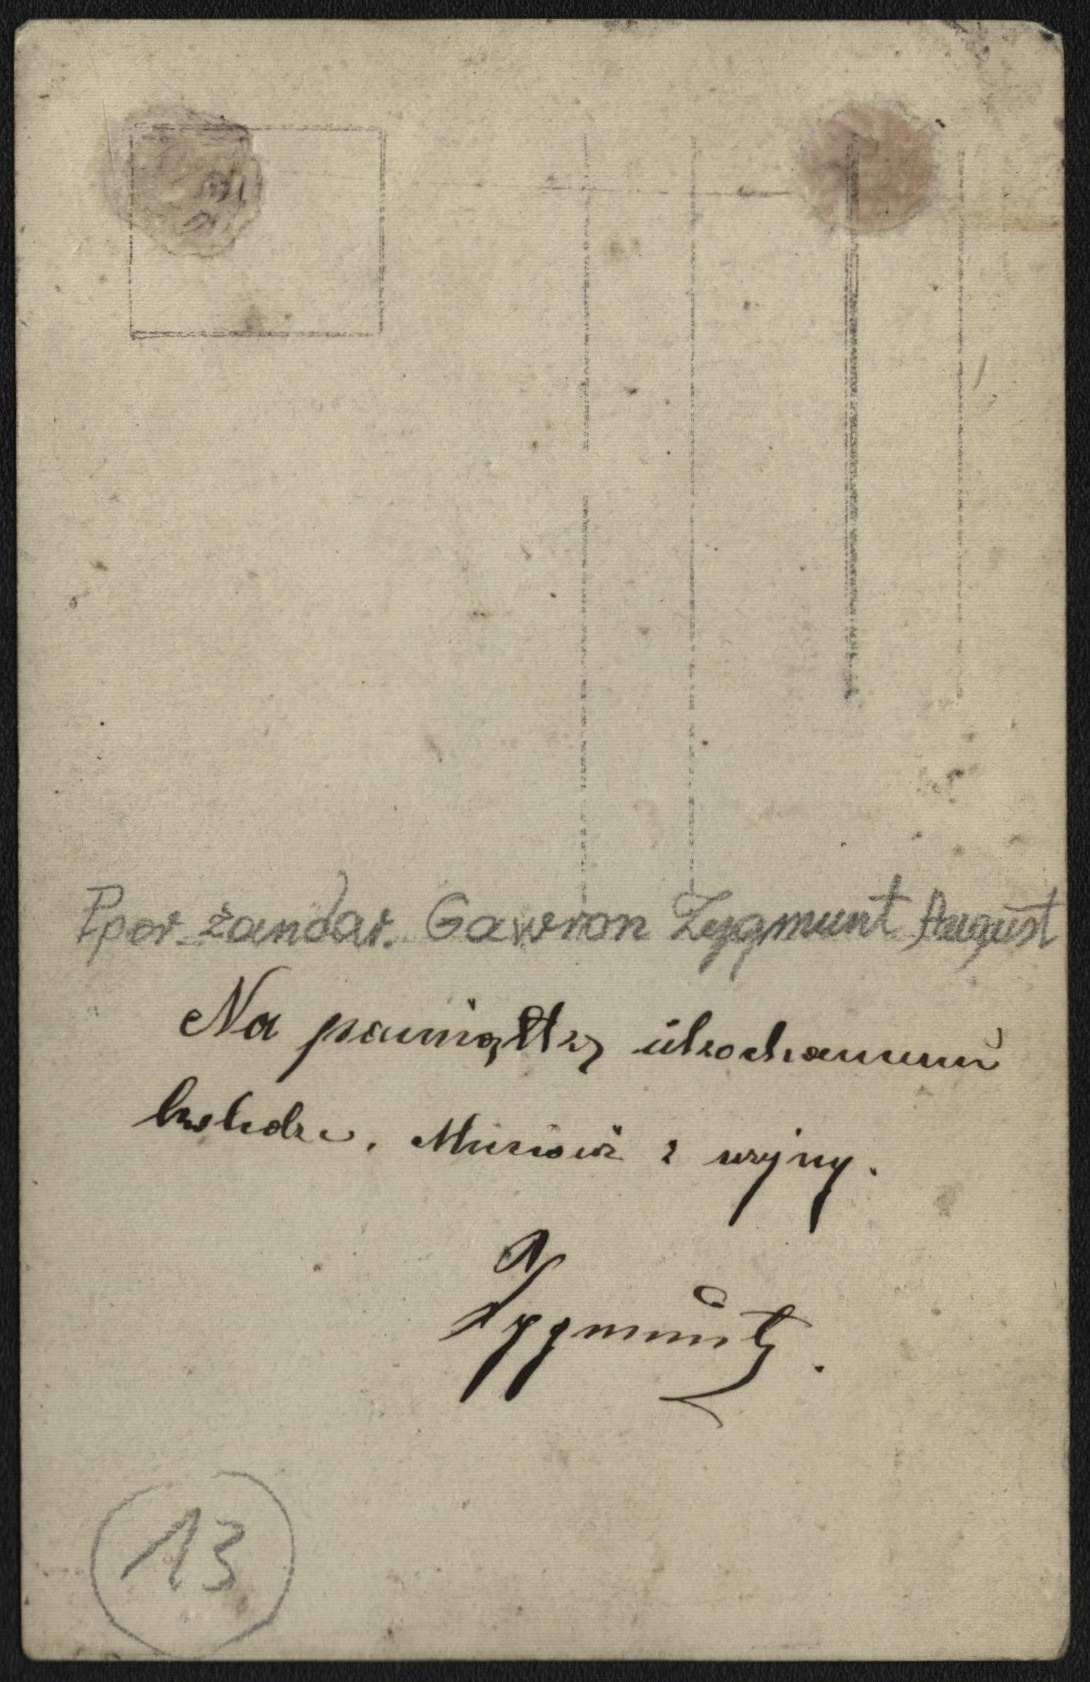 Ppor. żandar. Gawron Zygmunt August
Na pamiątkę ukochanemu
z wojny.
Zygmunt.
13